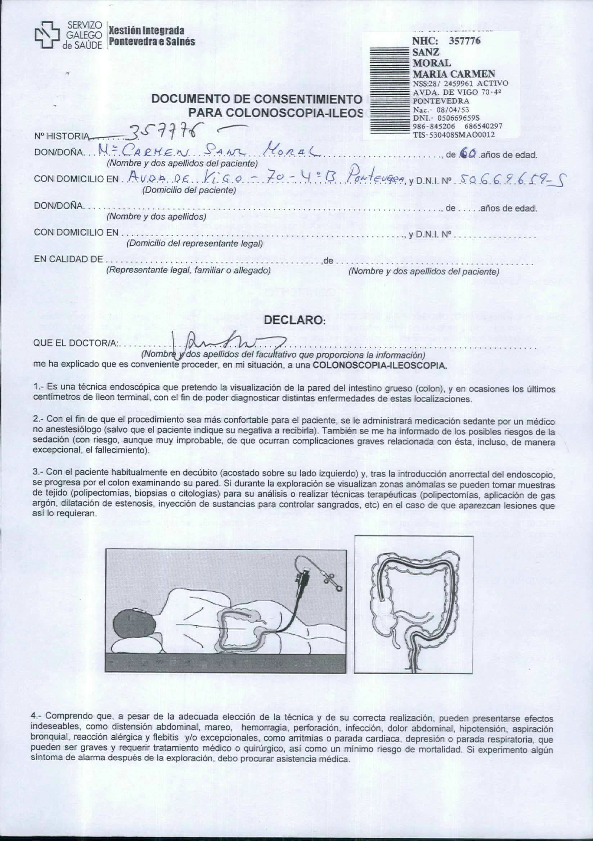 SERVIZO
GALEGO
de SAÚDE
Xestión Integrada
Pontevedra e Salnés
NHC: 357776
SANZ
MORAL
MARIA CARMEN
NSS:28/ 2459961 ACTIVO
AVDA. DE VIGO 70-4º
PONTEVEDRA
Nac.- 08/04/53
DNI.- 050669659S
986-845206 686540297
TIS-5304085MAO0012
DOCUMENTO DE CONSENTIMIENTO
PARA COLONOSCOPIA-ILEOS
Nº HISTORIA 357776
DON/DOÑA Mª CARMEN SANZ MORAL, de 60 años de edad.
(Nombre y dos apellidos del paciente)
CON DOMICILIO EN AVDA DE VIGO - 70 - 4º B PONTEVEDRA, y D.N.I. Nº 50669659-S
(Domicilio del paciente)
DON/DOÑA, de años de edad.
(Nombre y dos apellidos)
CON DOMICILIO EN, y D.N.I. Nº
(Domicilio del representante legal)
EN CALIDAD DE, de
(Representante legal, familiar o allegado) (Nombre y dos apellidos del paciente)
DECLARO:
QUE EL DOCTOR/A:
(Nombre y dos apellidos del facultativo que proporciona la información)
me ha explicado que es conveniente proceder, en mi situación, a una COLONOSCOPIA-ILEOSCOPIA.
1.- Es una técnica endoscópica que pretendo la visualización de la pared del intestino grueso (colon), y en ocasiones los últimos
centímetros de íleon terminal, con el fin de poder diagnosticar distintas enfermedades de estas localizaciones.
2.- Con el fin de que el procedimiento sea más confortable para el paciente, se le administrará medicación sedante por un médico
no anestesiólogo (salvo que el paciente indique su negativa a recibirla). También se me ha informado de los posibles riesgos de la
sedación (con riesgo, aunque muy improbable, de que ocurran complicaciones graves relacionada con ésta, incluso, de manera
excepcional, el fallecimiento).
3.- Con el paciente habitualmente en decúbito (acostado sobre su lado izquierdo) y, tras la introducción anorrectal del endoscopio,
se progresa por el colon examinando su pared. Si durante la exploración se visualizan zonas anómalas se pueden tomar muestras
de tejido (polipectomías, biopsias o citologías) para su análisis o realizar técnicas terapéuticas (polipectomías, aplicación de gas
argón, dilatación de estenosis, inyección de sustancias para controlar sangrados, etc) en el caso de que aparezcan lesiones que
así lo requieran.
4.- Comprendo que, a pesar de la adecuada elección de la técnica y de su correcta realización, pueden presentarse efectos
indeseables, como distensión abdominal, mareo, hemorragia, perforación, infección, dolor abdominal, hipotensión, aspiración
bronquial, reacción alérgica y flebitis y/o excepcionales, como arritmias o parada cardiaca, depresión o parada respiratoria, que
pueden ser graves y requerir tratamiento médico o quirúrgico, así como un mínimo riesgo de mortalidad. Si experimento algún
síntoma de alarma después de la exploración, debo procurar asistencia médica.